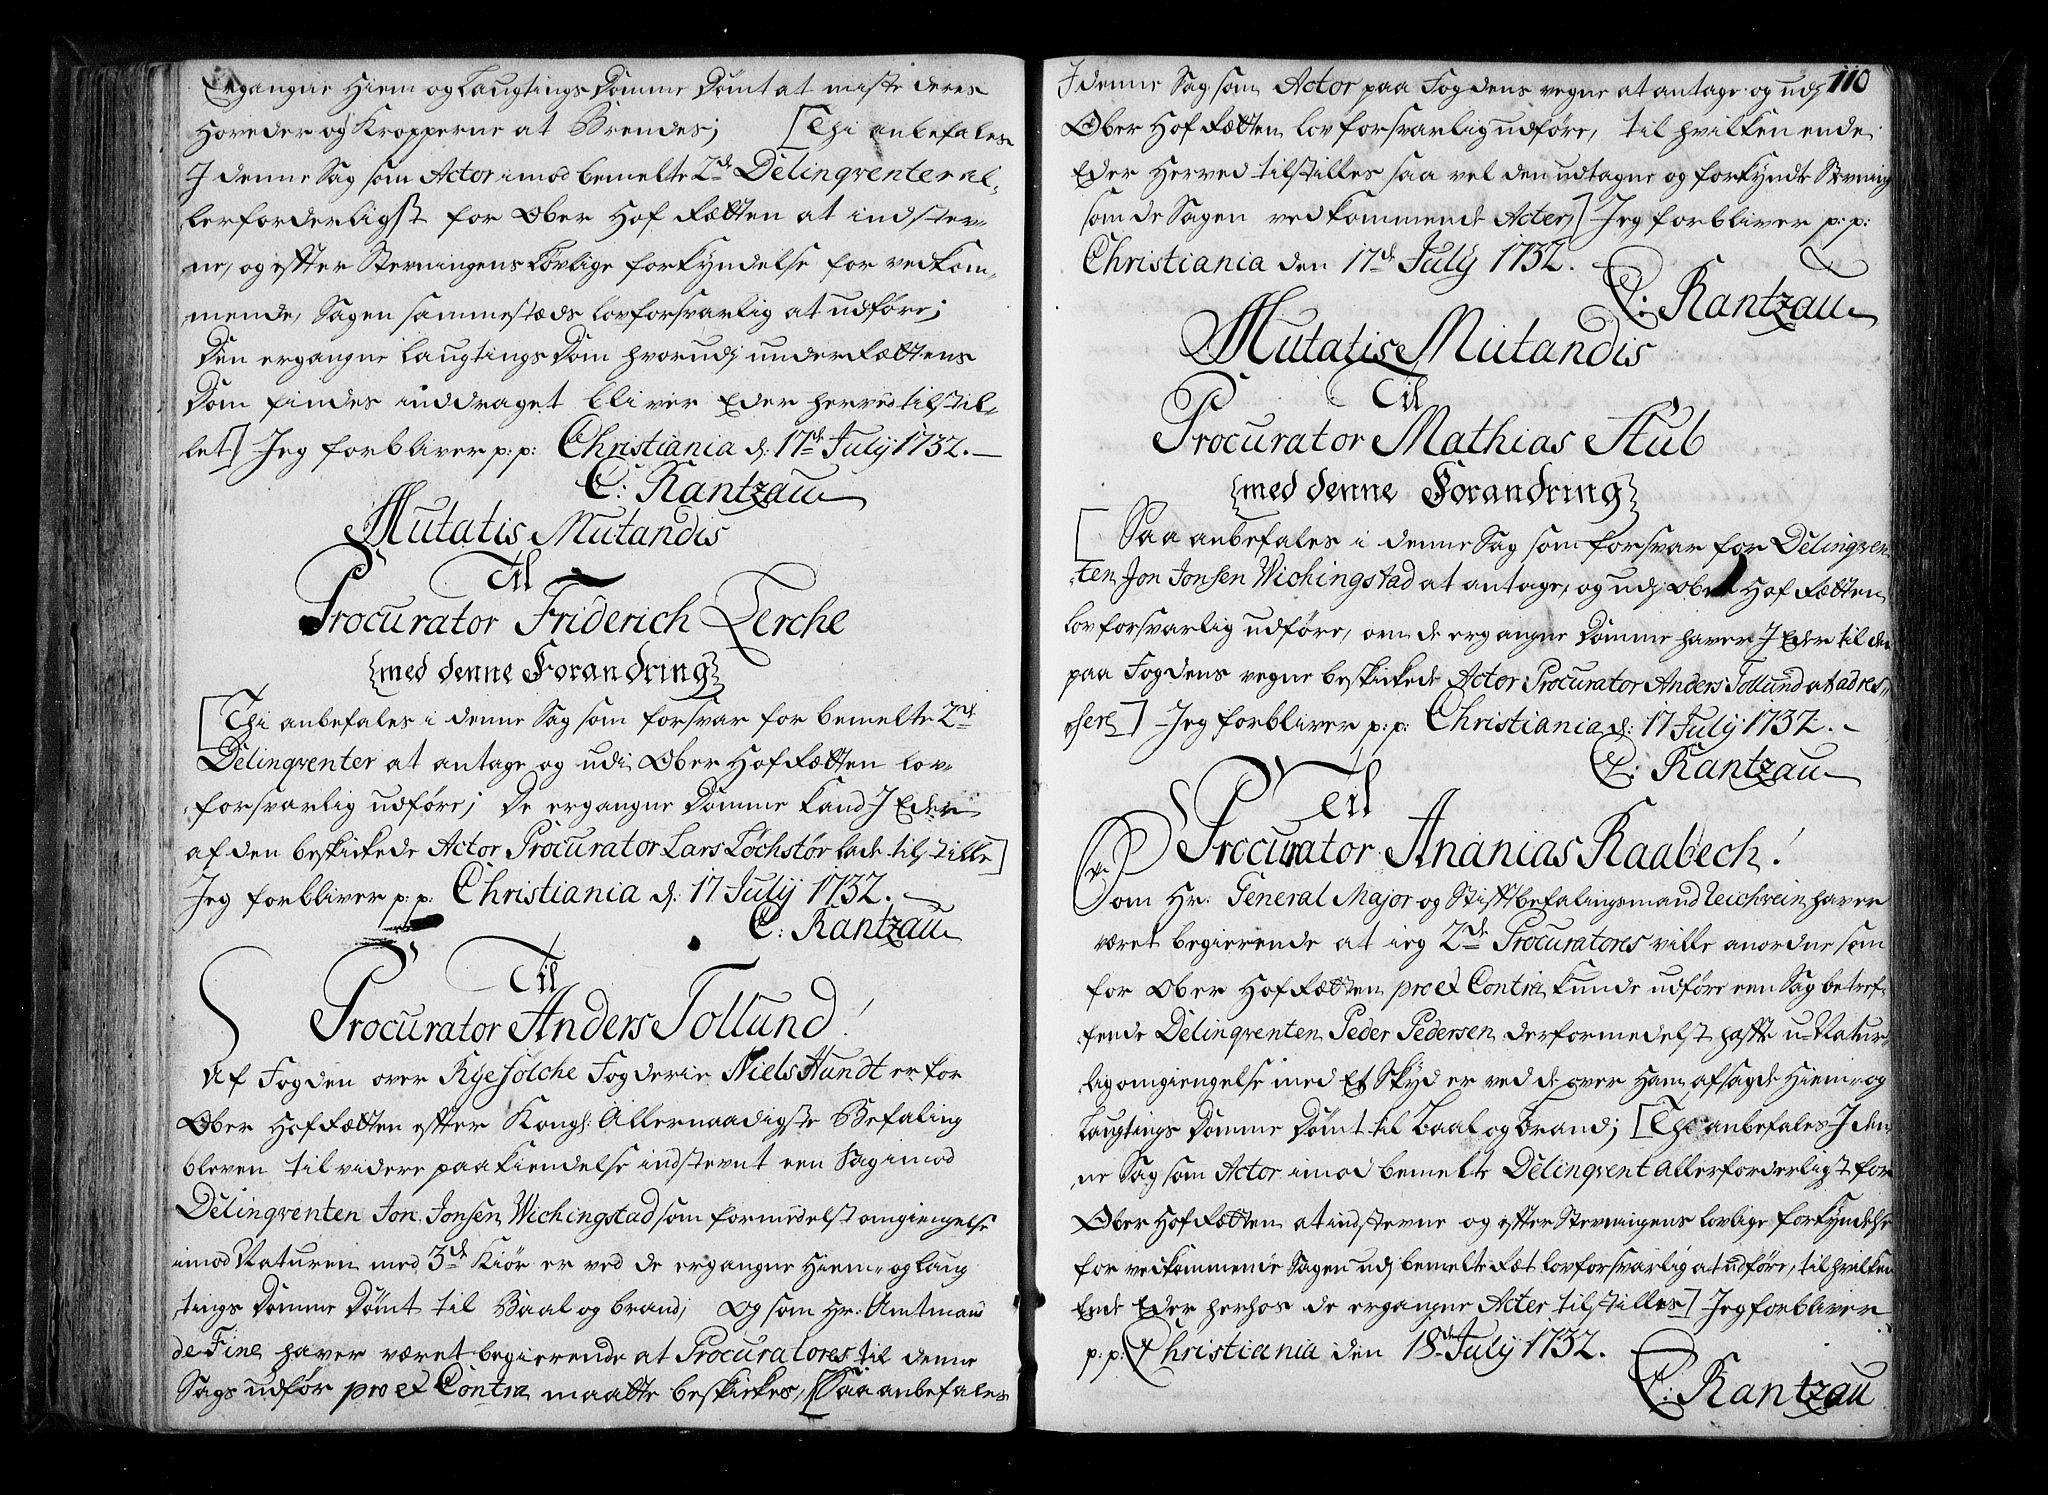 Ergangne Hiem og Laugtings Domme Dömt at miste deres
Hoveder og Kropperne at Brendes; [Thi anbefales
I denne Sag som Actor imod bemelte 2de Delinqventer al-
lerforderligst for Ober Hof Rætten at indstev-
ne, og efter Stevningens Lovlige forkyndelse for vedkom-
mende, Sagen sammestæds lovforsvarlig at udföre;
Den ergangne Laugtings Dom hvorudj underRættens
Dom findes inddraget bliver Eder herved tilstil-
let] Jeg forbliver p: p: Christiania d: 17de July 1732.
C: Rantzau
Mutatis Mutandis
Til
Procurator Friderich Lerche
{med denne Forandring}
[Thi anbefales i denne Sag som forsvar for bemelte 2de
Delinqventer at antage og udi Ober Hof Rætten lov-
forsvarlig udföre; De ergangne Domme kand I Eder
af den beskickede Actor Procurator Lars Löchstör lade tilstille]
Jeg forbliver p: p: Christiania d: 17 July 1732.
C: Rantzau
Til
Procurator Anders Tollund!
Af Fogden over Ryefölche Fogderie Niels Hundt er for
Ober Hof Rætten efter Kongl: Allernaadigste Befaling
bleven til videre paakiendelse indstevnt een Sag imod
Delinqventen Jon Jonsen Wichingstad som formedelst omgiengelse
imod Naturen med 3de Kiör er ved de ergangne Hiem- og Laug
tings Domme Dömt til Baal og brand; Og som Hr: Amtmand
de Fine haver været begierende at Procuratores til denne
Sags udför pro et Contra maatte beskickes, [Saa anbefales
110
I denne Sag som Actor paa Fogdens vegne at antage og udj
Ober Hof Rætten lovforsvarlig udföre, til hvilken ende
Eder Herved tilstilles saa vel den udtagne og forkyndte Stevning
som de Sagen vedkommende Acter] Jeg forbliver p: p:
Christiania den 17de July 1732.
C: Rantzau
Mutatis Mutandis
Til
Procurator Mathias Stub
{med denne Forandring}
[Saa anbefales i denne Sag som forsvar for Delinqven-
ten Jon Jonsen Wichingstad at antage, og udj Ober Hof Rætten
lovforsvarlig udföre, om de ergangne Domme haver I Eder til den
paa Fogdens vegne beskickede Actor Procurator Anders Tollund at adres-
sere] Jeg forbliver p: p: Christiania d: 17 July 1732.
C: Rantzau
Til
Procurator Ananias Raabech!
Som Hr: General Major og Stiftbefalingsmand Leichvein haver
været begierende at ieg 2de Procuratores ville anordne som
for Ober Hof Rætten pro et Contra kunde udföre een Sag betref-
fende Delinqventen Peder Pedersen derformedelst hafte u-Natur-
lig omgiengelse med Et Skyd er ved de over Ham afsagde Hiem- og
Laugtings Domme Dömt til Baal og brand; [Thi anbefales I den-
ne Sag som Actor imod bemelte Delinqvent allerforderligst for
Ober Hof Rætten at indstevne og efter Stevningens lovlige forkyndelse
for vedkommende Sagen udj bemelte Ret lovforsvarlig at udföre, til hvilken
Ende Eder herhos de ergangne Acter tilstilles] Jeg forbliver
p: p: Christiania den 18de July 1732.
C: Rantzau